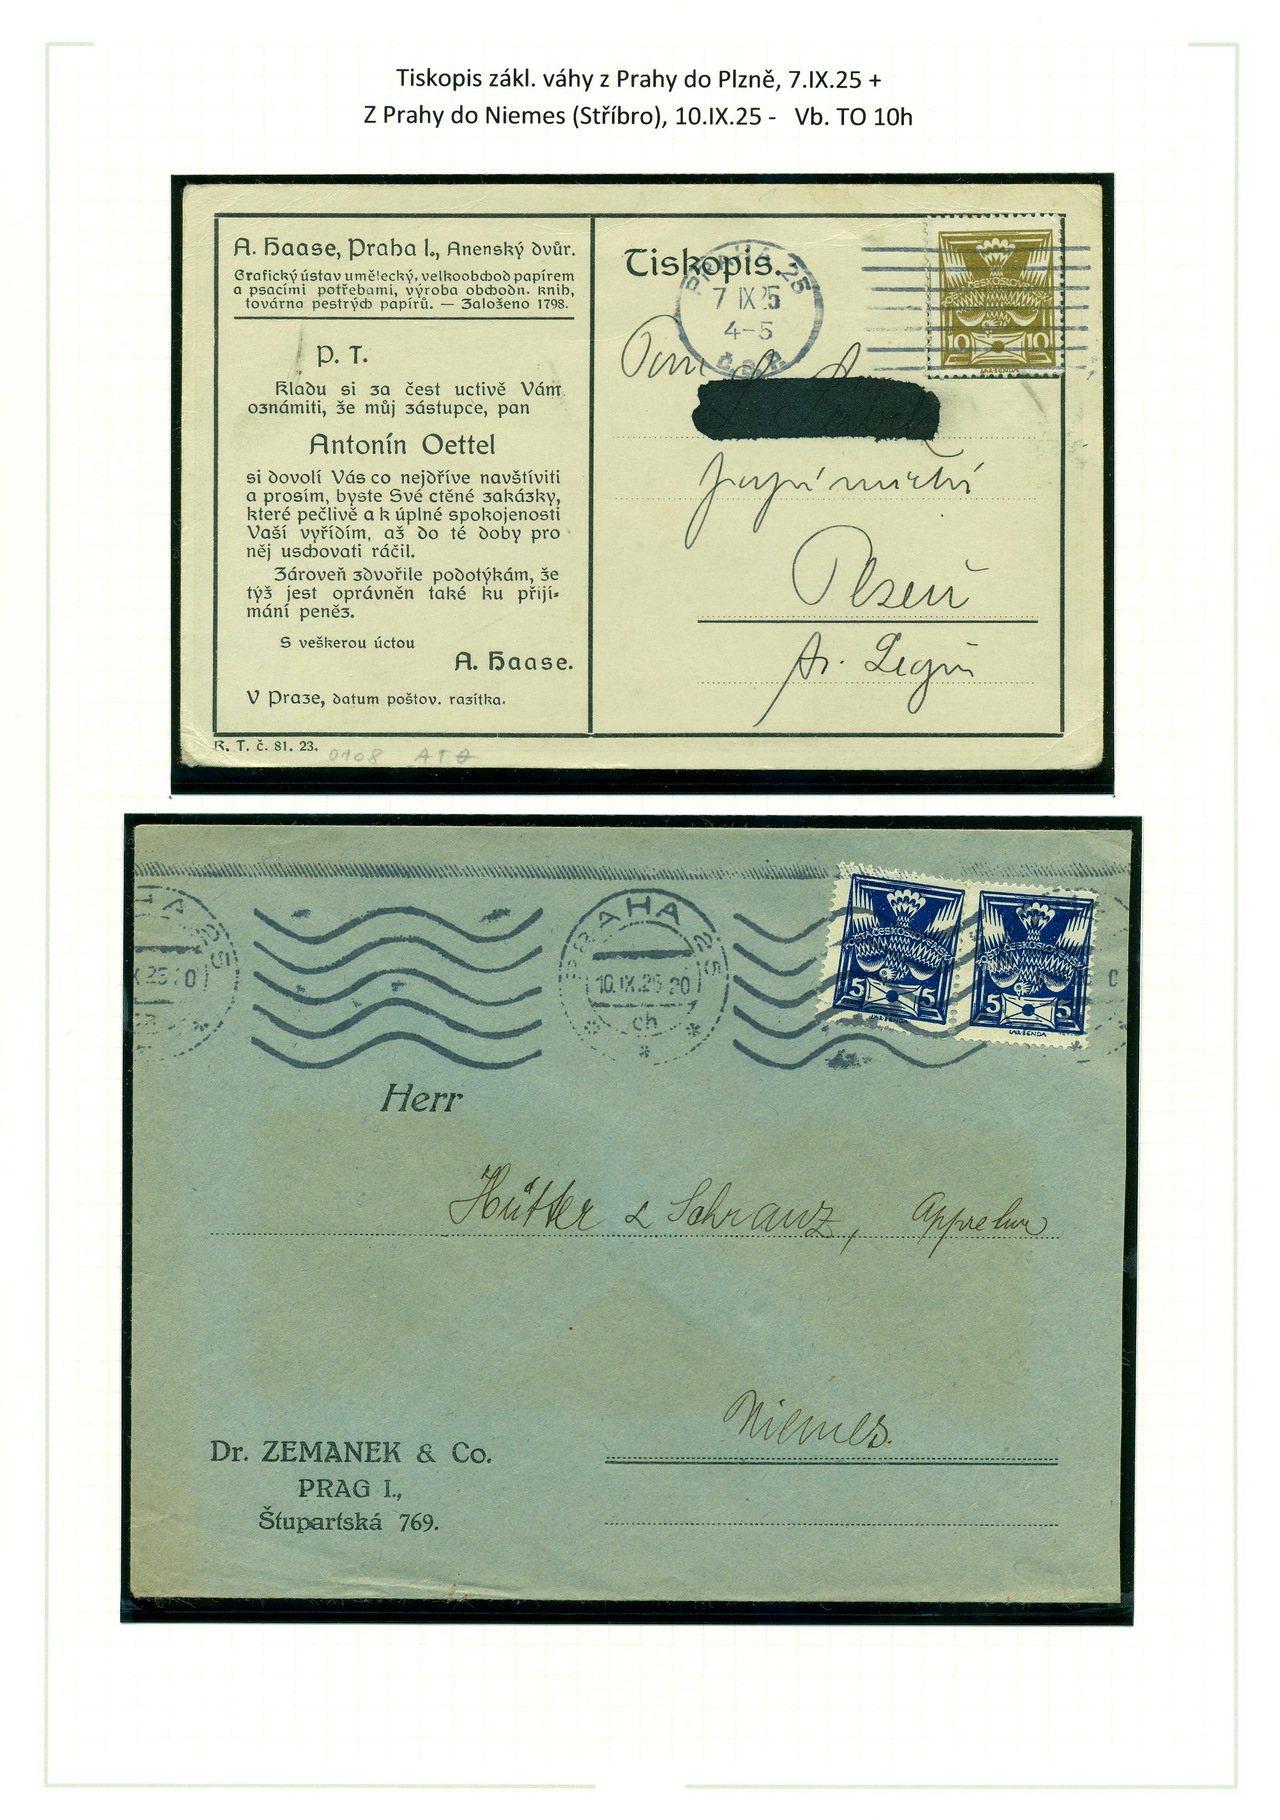 Tiskopis zákl. váhy z Prahy do Plzně, 7.IX.25 +
Z Prahy do Niemes (Stříbro), 10.IX.25 - Vb. TO 10h
A. Haase, Praha I., Anenský dvůr.
Grafický ústav umělecký, velkoobchod papírem
a psacími potřebami, výroba obchodn. knih,
továrna pestrých papírů. — Založeno 1798.
P. T.
Kladu si za čest uctivě Vám
oznámiti, že můj zástupce, pan
Antonín Oettel
si dovolí Vás co nejdříve navštíviti
a prosím, byste Své ctěné zakázky,
které pečlivě a k úplné spokojenosti
Vaší vyřídím, až do té doby pro
něj uschovati ráčil.
Zároveň zdvořile podotýkám, že
týž jest oprávněn také ku přijí-
mání peněz.
S veškerou úctou
A. Haase.
V Praze, datum poštov. razítka.
K. T. č. 81. 23.
0108
Tiskopis.
PRAHA 25
7 IX 25
4-5
Č.S.P.
POŠTA ČESKOSLOVENSKÁ
10 10
Pan
papírnictví
Plzeň
PRAHA 25
10.IX.25 20
ch
POŠTA ČESKOSLOVENSKÁ
5 5
POŠTA ČESKOSLOVENSKÁ
5 5
Herr
Hütter & Schranz, Appretur
Niemes.
Dr. ZEMANEK & Co.
PRAG I.,
Štupartská 769.